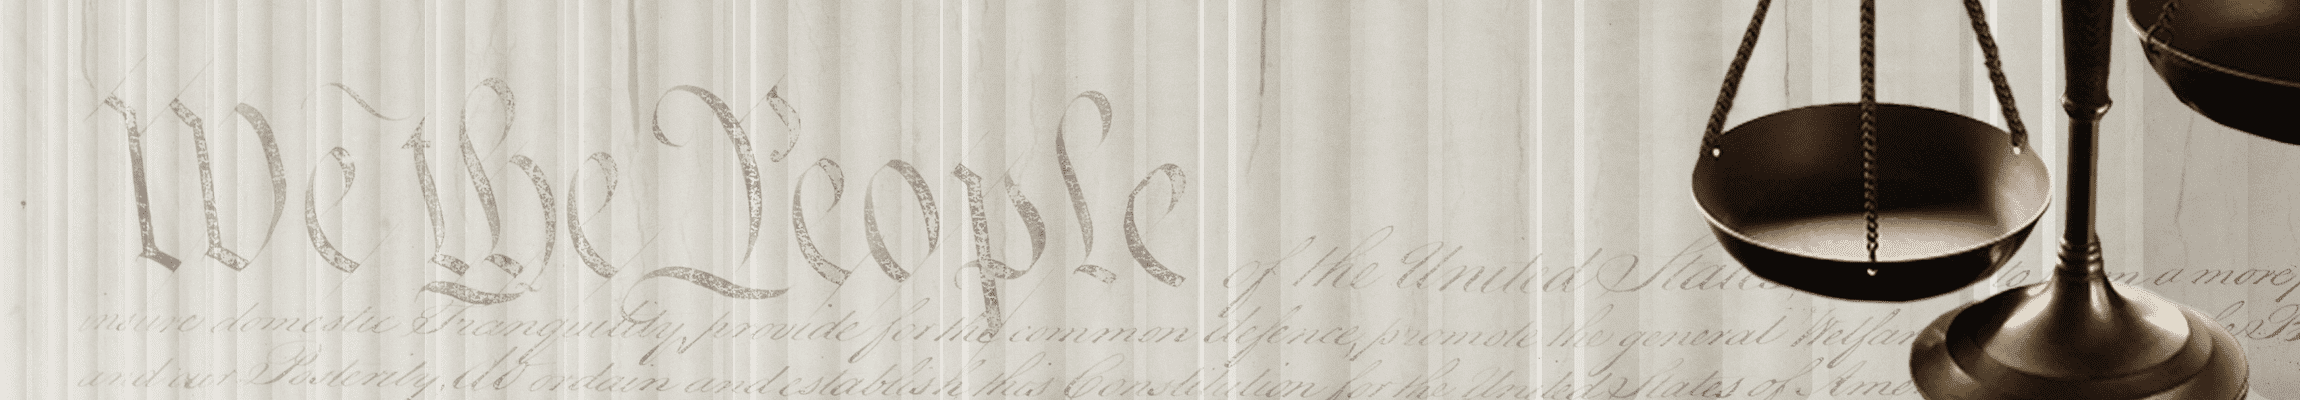 We the People of the United States, in a more
insure domestic Tranquility, provide for the common defence, promote the general Welfare
and our Posterity, do ordain and establish this Constitution for the United States of Ame